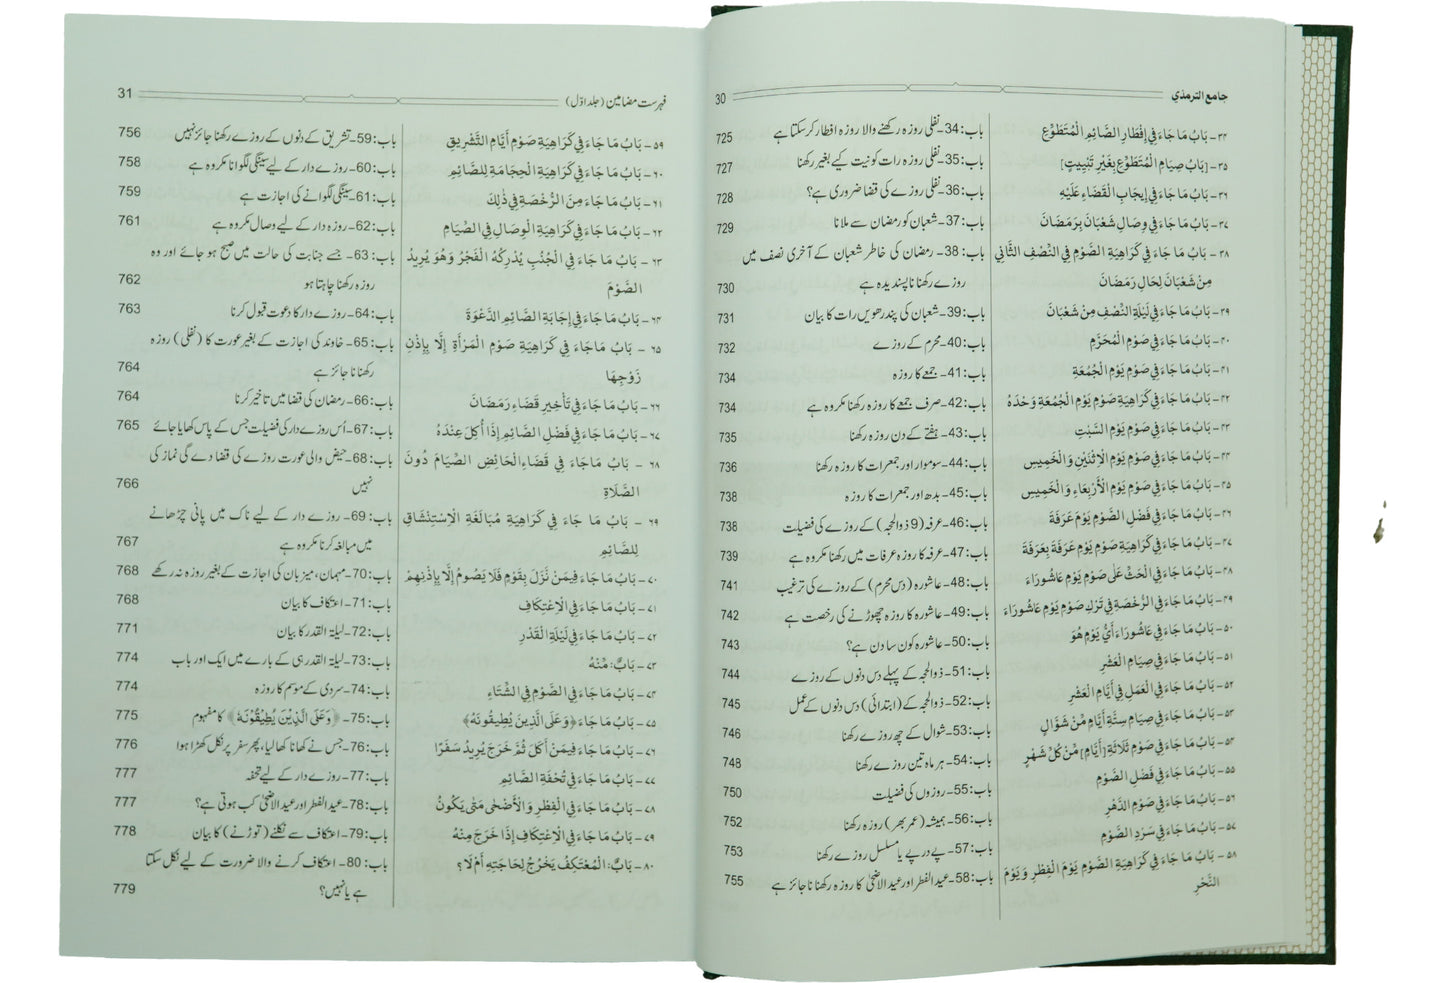 جامع الترمذي 30
۳۴- بَابُ مَا جَاءَ فِي إِفْطَارِ الصَّائِمِ الْمُتَطَوِّعِ باب:34- نفلی روزہ رکھنے والا روزہ افطار کر سکتا ہے 725
۳۵- [بَابُ صِيَامِ الْمُتَطَوِّعِ بِغَيْرِ تَبْيِيتٍ] باب:35- نفلی روزہ رات کو نیت کیے بغیر رکھنا 727
۳۶- بَابُ مَا جَاءَ فِي إِيجَابِ الْقَضَاءِ عَلَيْهِ باب:36- نفلی روزے کی قضا ضروری ہے؟ 728
۳۷- بَابُ مَا جَاءَ فِي وِصَالِ شَعْبَانَ بِرَمَضَانَ باب:37- شعبان کو رمضان سے ملانا 729
۳۸- بَابُ مَا جَاءَ فِي كَرَاهِيَةِ الصَّوْمِ فِي النِّصْفِ الثَّانِي باب:38- رمضان کی خاطر شعبان کے آخری نصف میں
مِنْ شَعْبَانَ لِحَالِ رَمَضَانَ روزے رکھنا ناپسندیدہ ہے 730
۳۹- بَابُ مَا جَاءَ فِي لَيْلَةِ النِّصْفِ مِنْ شَعْبَانَ باب:39- شعبان کی پندرھویں رات کا بیان 731
۴۰- بَابُ مَا جَاءَ فِي صَوْمِ الْمُحَرَّمِ باب:40- محرم کے روزے 732
۴۱- بَابُ مَا جَاءَ فِي صَوْمِ يَوْمِ الْجُمُعَةِ باب:41- جمعے کا روزہ 734
۴۲- بَابُ مَا جَاءَ فِي كَرَاهِيَةِ صَوْمِ يَوْمِ الْجُمُعَةِ وَحْدَهُ باب:42- صرف جمعے کا روزہ رکھنا مکروہ ہے 734
۴۳- بَابُ مَا جَاءَ فِي صَوْمِ يَوْمِ السَّبْتِ باب:43- ہفتے کے دن روزہ رکھنا 735
۴۴- بَابُ مَا جَاءَ فِي صَوْمِ يَوْمِ الِاثْنَيْنِ وَالْخَمِيسِ باب:44- سوموار اور جمعرات کا روزہ رکھنا 736
۴۵- بَابُ مَا جَاءَ فِي صَوْمِ يَوْمِ الْأَرْبِعَاءِ وَالْخَمِيسِ باب:45- بدھ اور جمعرات کا روزہ 738
۴۶- بَابُ مَا جَاءَ فِي فَضْلِ الصَّوْمِ يَوْمَ عَرَفَةَ باب:46- عرفہ (9 ذوالحجہ) کے روزے کی فضیلت 738
۴۷- بَابُ مَا جَاءَ فِي كَرَاهِيَةِ صَوْمِ يَوْمِ عَرَفَةَ بِعَرَفَةَ باب:47- عرفہ کا روزہ عرفات میں رکھنا مکروہ ہے 739
۴۸- بَابُ مَا جَاءَ فِي الْحَثِّ عَلَى صَوْمِ يَوْمِ عَاشُورَاءَ باب:48- عاشورہ (دس محرم) کے روزے کی ترغیب 741
۴۹- بَابُ مَا جَاءَ فِي الرُّخْصَةِ فِي تَرْكِ صَوْمِ يَوْمِ عَاشُورَاءَ باب:49- عاشورہ کا روزہ چھوڑنے کی رخصت ہے 742
۵۰- بَابُ مَا جَاءَ فِي عَاشُورَاءَ أَيُّ يَوْمٍ هُوَ باب:50- عاشورہ کون سا دن ہے؟ 743
۵۱- بَابُ مَا جَاءَ فِي صِيَامِ الْعَشْرِ باب:51- ذوالحجہ کے پہلے دس دنوں کے روزے 744
۵۲- بَابُ مَا جَاءَ فِي الْعَمَلِ فِي أَيَّامِ الْعَشْرِ باب:52- ذوالحجہ کے (ابتدائی) دس دنوں کے عمل 745
۵۳- بَابُ مَا جَاءَ فِي صِيَامِ سِتَّةِ أَيَّامٍ مِّنْ شَوَّالٍ باب:53- شوال کے چھ روزے رکھنا 746
۵۴- بَابُ مَا جَاءَ فِي صَوْمِ ثَلَاثَةِ [أَيَّامٍ] مِّنْ كُلِّ شَهْرٍ باب:54- ہر ماہ تین روزے رکھنا 748
۵۵- بَابُ مَا جَاءَ فِي فَضْلِ الصَّوْمِ باب:55- روزوں کی فضیلت 750
۵۶- بَابُ مَا جَاءَ فِي صَوْمِ الدَّهْرِ باب:56- ہمیشہ (عمر بھر) روزہ رکھنا 752
۵۷- بَابُ مَا جَاءَ فِي سَرْدِ الصَّوْمِ باب:57- پے در پے یا مسلسل روزے رکھنا 753
۵۸- بَابُ مَا جَاءَ فِي كَرَاهِيَةِ الصَّوْمِ يَوْمَ الْفِطْرِ وَيَوْمَ باب:58- عیدالفطر اور عیدالاضحیٰ کا روزہ رکھنا ناجائز ہے 755
النَّحْرِ
فہرست مضامین (جلد اوّل) 31
۵۹- بَابُ مَا جَاءَ فِي كَرَاهِيَةِ صَوْمِ أَيَّامِ التَّشْرِيقِ باب:59- تشریق کے دنوں کے روزے رکھنا جائز نہیں 756
۶۰- بَابُ مَا جَاءَ فِي كَرَاهِيَةِ الْحِجَامَةِ لِلصَّائِمِ باب:60- روزے دار کے لیے سینگی لگوانا مکروہ ہے 758
۶۱- بَابُ مَا جَاءَ مِنَ الرُّخْصَةِ فِي ذٰلِكَ باب:61- سینگی لگوانے کی اجازت ہے 759
۶۲- بَابُ مَا جَاءَ فِي كَرَاهِيَةِ الْوِصَالِ فِي الصِّيَامِ باب:62- روزہ دار کے لیے وصال مکروہ ہے 761
۶۳- بَابُ مَا جَاءَ فِي الْجُنُبِ يُدْرِكُهُ الْفَجْرُ وَهُوَ يُرِيدُ باب:63- جسے جنابت کی حالت میں صبح ہو جائے اور وہ
الصَّوْمَ روزہ رکھنا چاہتا ہو 762
۶۴- بَابُ مَا جَاءَ فِي إِجَابَةِ الصَّائِمِ الدَّعْوَةَ باب:64- روزے دار کا دعوت قبول کرنا 763
۶۵- بَابُ مَا جَاءَ فِي كَرَاهِيَةِ صَوْمِ الْمَرْأَةِ إِلَّا بِإِذْنِ باب:65- خاوند کی اجازت کے بغیر عورت کا (نفلی) روزہ
زَوْجِهَا رکھنا ناجائز ہے 764
۶۶- بَابُ مَا جَاءَ فِي تَأْخِيرِ قَضَاءِ رَمَضَانَ باب:66- رمضان کی قضا میں تاخیر کرنا 764
۶۷- بَابُ مَا جَاءَ فِي فَضْلِ الصَّائِمِ إِذَا أُكِلَ عِنْدَهُ باب:67- اُس روزے دار کی فضیلت جس کے پاس کھایا جائے 765
۶۸- بَابُ مَا جَاءَ فِي قَضَاءِ الْحَائِضِ الصِّيَامَ دُونَ باب:68- حیض والی عورت روزے کی قضا دے گی نماز کی
الصَّلَاةِ نہیں 766
۶۹- بَابُ مَا جَاءَ فِي كَرَاهِيَةِ مُبَالَغَةِ الِاسْتِنْشَاقِ باب:69- روزے دار کے لیے ناک میں پانی چڑھانے
لِلصَّائِمِ میں مبالغہ کرنا مکروہ ہے 767
۷۰- بَابُ مَا جَاءَ فِيمَنْ نَّزَلَ بِقَوْمٍ فَلَا يَصُومُ إِلَّا بِإِذْنِهِمْ باب:70- مہمان، میزبان کی اجازت کے بغیر روزہ نہ رکھے 768
۷۱- بَابُ مَا جَاءَ فِي الِاعْتِكَافِ باب:71- اعتکاف کا بیان 768
۷۲- بَابُ مَا جَاءَ فِي لَيْلَةِ الْقَدْرِ باب:72- لیلۃ القدر کا بیان 771
۷۳- بَابٌ: مِّنْهُ باب:73- لیلۃ القدر ہی کے بارے میں ایک اور باب 774
۷۴- بَابُ مَا جَاءَ فِي الصَّوْمِ فِي الشِّتَاءِ باب:74- سردی کے موسم کا روزہ 774
۷۵- بَابُ مَا جَاءَ ﴿وَعَلَى الَّذِينَ يُطِيقُونَهُ﴾ باب:75- ﴿وَعَلَى الَّذِيْنَ يُطِيْقُوْنَهٗ﴾ کا مفہوم 775
۷۶- بَابُ مَا جَاءَ فِيمَنْ أَكَلَ ثُمَّ خَرَجَ يُرِيدُ سَفَرًا باب:76- جس نے کھانا کھا لیا، پھر سفر پر نکل کھڑا ہوا 776
۷۷- بَابُ مَا جَاءَ فِي تُحْفَةِ الصَّائِمِ باب:77- روزے دار کے لیے تحفہ 777
۷۸- بَابُ مَا جَاءَ فِي الْفِطْرِ وَالْأَضْحٰى مَتٰى يَكُونُ باب:78- عیدالفطر اور عیدالاضحیٰ کب ہوتی ہے؟ 777
۷۹- بَابُ مَا جَاءَ فِي الِاعْتِكَافِ إِذَا خَرَجَ مِنْهُ باب:79- اعتکاف سے نکلنے (توڑنے) کا بیان 778
۸۰- بَابٌ: الْمُعْتَكِفُ يَخْرُجُ لِحَاجَتِهِ أَمْ لَا؟ باب:80- اعتکاف کرنے والا ضرورت کے لیے نکل سکتا
ہے یا نہیں؟ 779